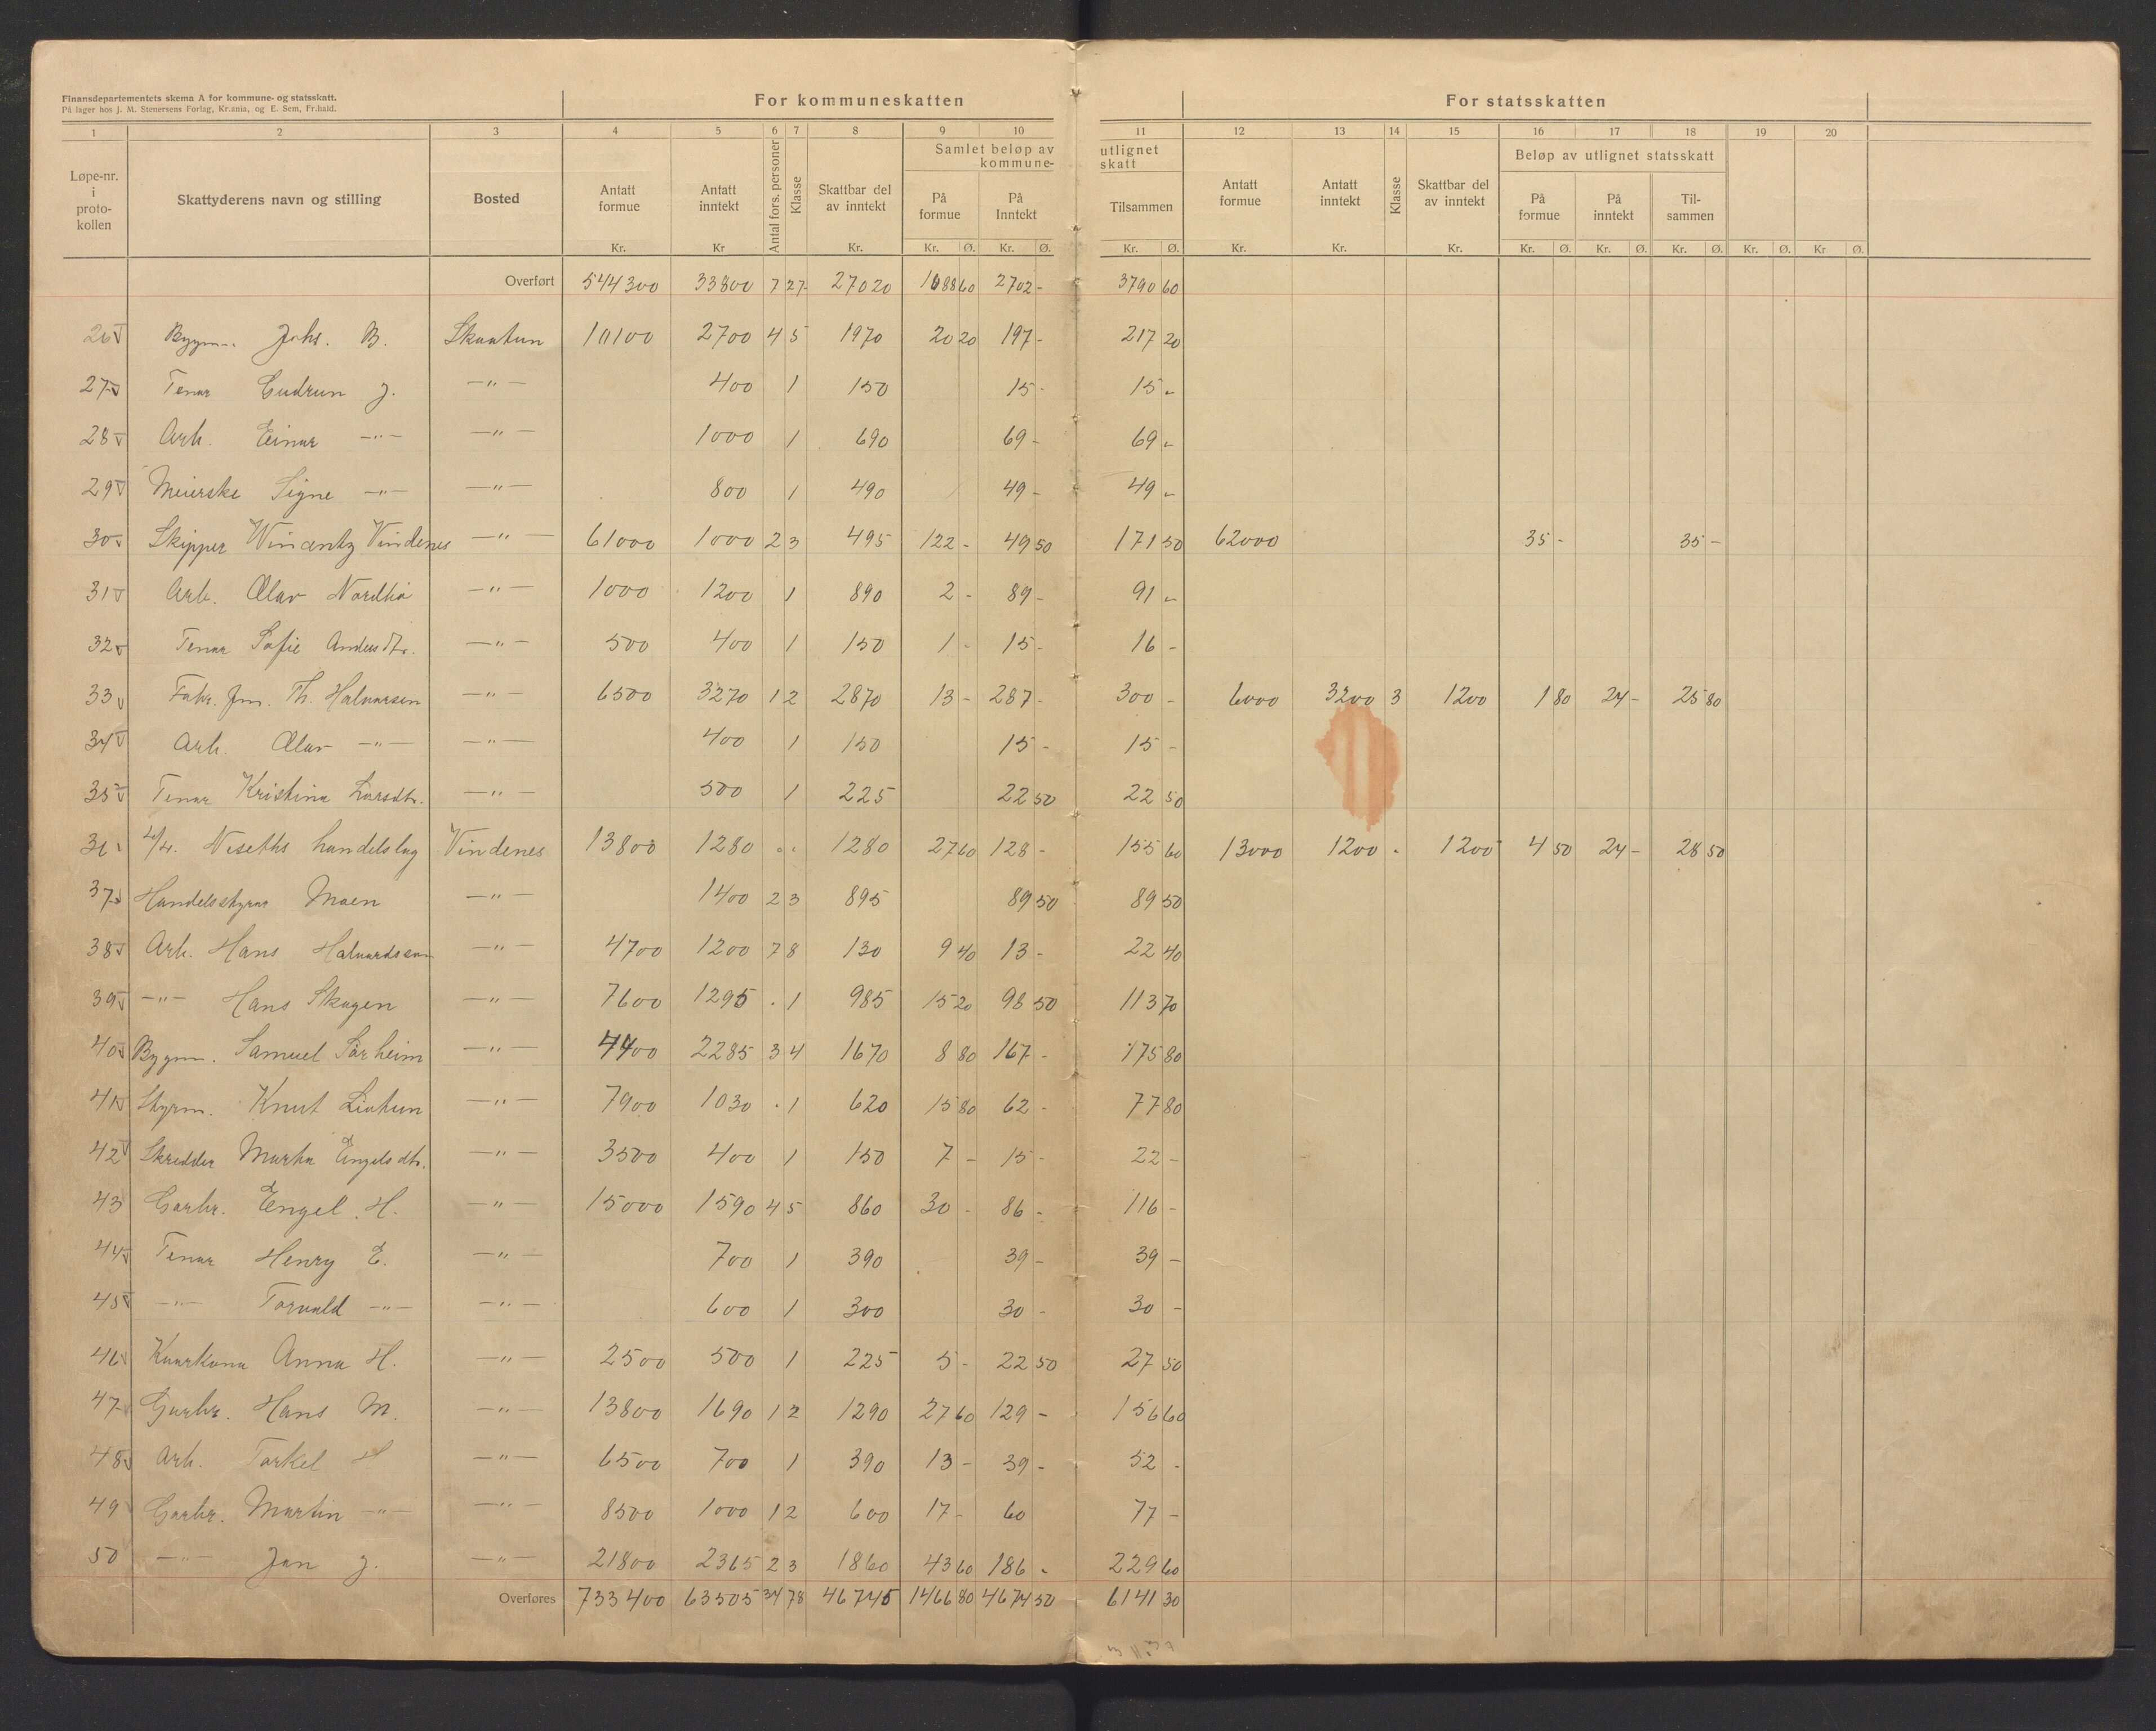 Finansdepartementets skema A for kommune- og statsskatt.
På lager hos J. M. Stenersens Forlag, Kr.ania, og E. Sem, Fr.hald.
For kommuneskatten For statsskatten
1 2 3 4 5 6 7 8 9 10 11 12 13 14 15 16 17 18 19 20
Løpe-nr. i proto-kollen Skattyderens navn og stilling Bosted Antatt formue Kr. Antatt inntekt Kr Antal fors. personer Klasse Skattbar del av inntekt Kr. Samlet beløp av kommune- utlignet skatt På formue Kr. Ø. På Inntekt Kr. Ø. Tilsammen Kr. Ø. Antatt formue Kr. Antatt inntekt Kr. Klasse Skattbar del av inntekt Kr. Beløp av utlignet statsskatt På formue Kr. Ø. På inntekt Kr. Ø. Til-sammen Kr. Ø. Kr. Ø. Kr Ø.
Overført 544300 33800 7 27 27020 1088 60 2702 - 3790 60
26 Bygm. Johs. B. Skaatun 10100 2700 4 5 1970 20 20 197 - 217 20
27 Tenar Gudrun J. —"— 400 1 150 15 - 15 -
28 Arb. Einar —"— —"— 1000 1 690 69 - 69 -
29 Meierske Signe —"— —"— 800 1 490 49 - 49 -
30 Skipper Winantz Vindenes —"— 61000 1000 2 3 495 122 - 49 50 171 50 62000 35 - 35 -
31 Arb. Olav Nordbö —"— 1000 1200 1 890 2 - 89 - 91 -
32 Tenar Sofie Andersdtr. —"— 500 400 1 150 1 - 15 - 16 -
33 Fabr. Th. Halvorsen —"— 6500 3270 1 2 2870 13 - 287 - 300 - 6000 3200 3 1200 1 80 24 - 25 80
34 Arb. Olav —"— —"— 400 1 150 15 - 15 -
35 Tenar Kristina Larsdtr. —"— 500 1 225 22 50 22 50
36 Neseths handelslag Vindenes 13800 1280 . . 1280 27 60 128 - 155 60 13000 1200 - 1200 4 50 24 - 28 50
37 Handelsstyrar Moen —"— 1400 2 3 895 89 50 89 50
38 Arb. Hans Halvardsen —"— 4700 1200 7 8 130 9 40 13 - 22 40
39 —"— Hans Skagen —"— 7600 1295 . 1 985 15 20 98 50 113 70
40 Bygm. Samuel Sörheim —"— 4400 2285 3 4 1670 8 80 167 - 175 80
41 Styrm. Knut Liatun —"— 7900 1030 . 1 620 15 80 62 - 77 80
42 Skredder Marta Engelsdtr. —"— 3500 400 1 150 7 - 15 - 22 -
43 Garbr. Engel H. —"— 15000 1590 4 5 860 30 - 86 - 116 -
44 Tenar Henry E. —"— 700 1 390 39 - 39 -
45 —"— Torvald —"— —"— 600 1 300 30 - 30 -
46 Kaarkona Anna H. —"— 2500 500 1 225 5 - 22 50 27 50
47 Garbr. Hans M. —"— 13800 1690 1 2 1290 27 60 129 - 156 60
48 Arb. Torkel H —"— 6500 700 1 390 13 - 39 - 52 -
49 Garbr. Martin —"— —"— 8500 1000 1 2 600 17 - 60 77 -
50 —"— Jan J. —"— 21800 2365 2 3 1860 43 60 186 - 229 60
Overføres 733400 63505 34 78 46745 1466 80 4674 50 6141 30